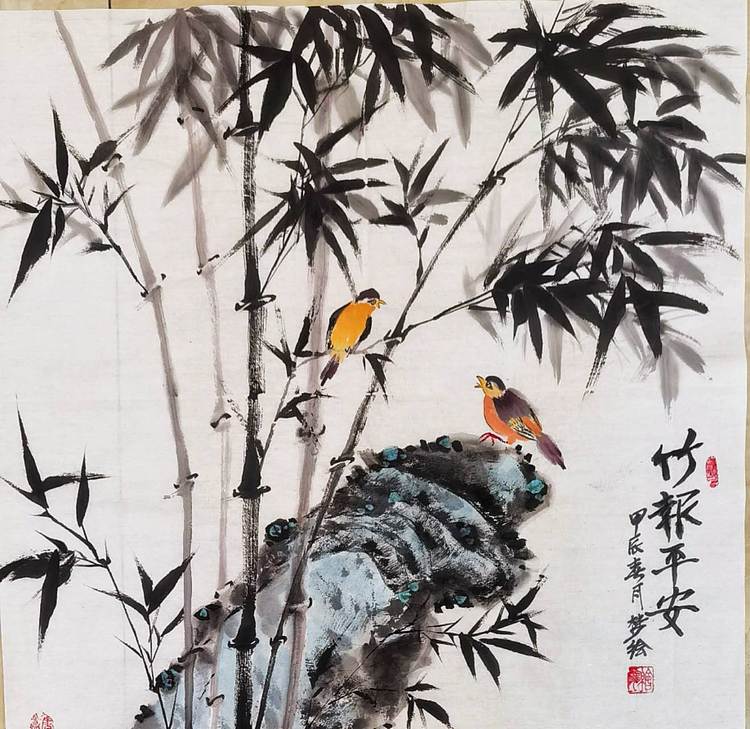 竹报平安
甲辰春月梦绘